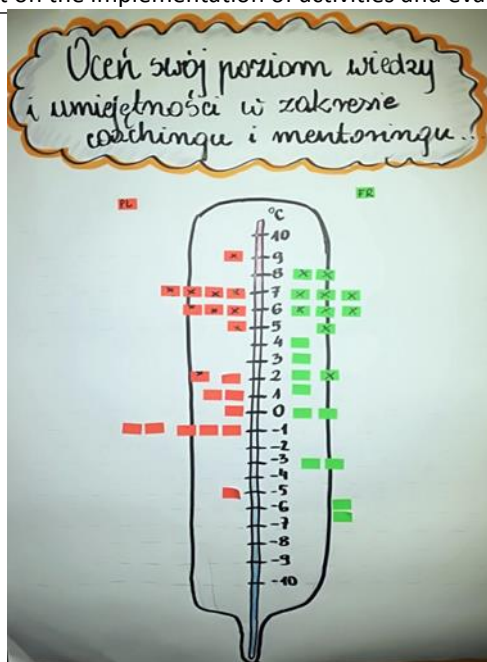 t on the implementation of activities and eva
Oceń swój poziom wiedzy
i umiejętności w zakresie
coachingu i mentoringu...
PL
FR
°C
10
9
8
7
6
5
4
3
2
1
0
-1
-2
-3
-4
-5
-6
-7
-8
-9
-10